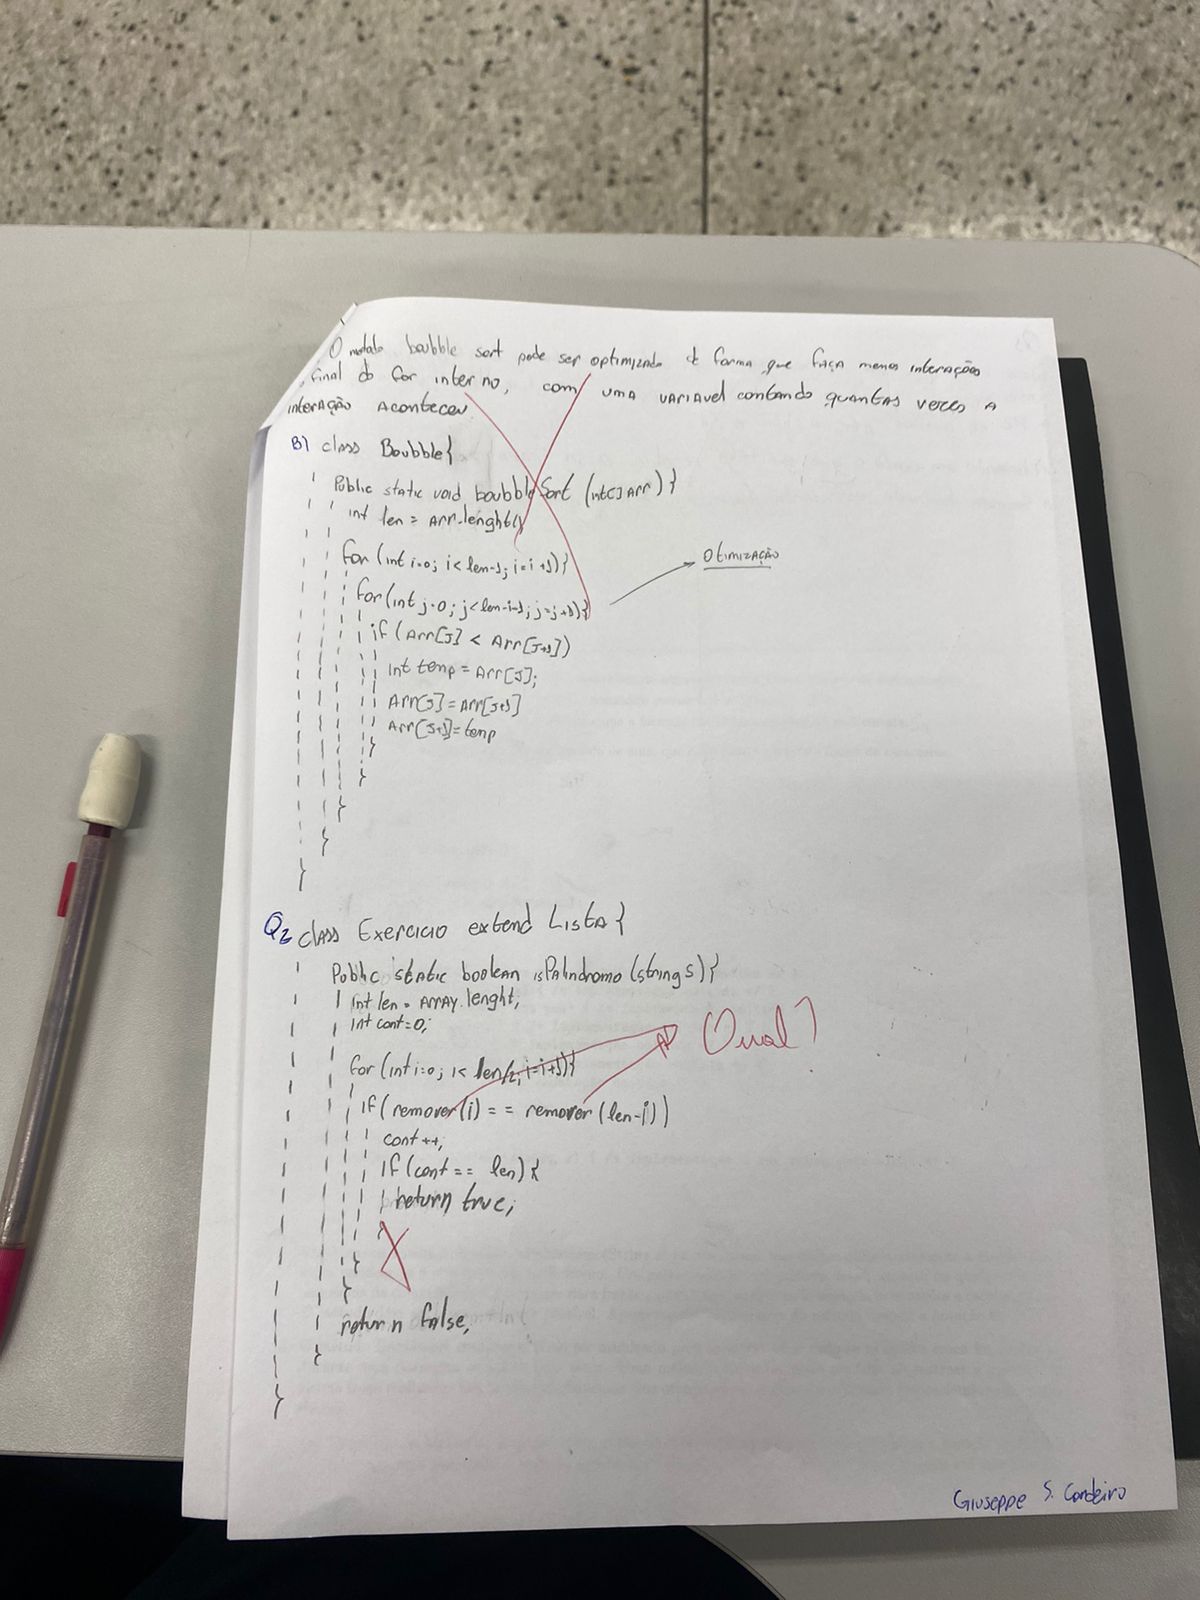 O metodo boubble sort pode ser optimizado de forma que faça menos interações
final do for interno, com uma variavel contando quantas vezes a
interação aconteceu
B) class Boubble{
Public static void boubbleSort (int[] Arr) {
int len = Arr.lenght()
for (int i=0; i < len-1; i=i+1){
for (int j=0; j<len-i-1; j=j+1){
Otimização
if (Arr[J] < Arr[J+1])
int temp = Arr[J];
Arr[J] = Arr[J+1]
Arr[J+1]=temp
}
}
}
}
}
Q2 class Exercicio extend Lista {
Public static boolean isPalindromo (string s) {
int len = ARRAY.lenght;
int cont=0;
Qual?
for (int i=0; i< len/2; i=i+1){
if (remover(i) == remover (len-i))
cont ++;
if (cont == len) {
return true;
}
}
}
return false;
}
}
Giuseppe S. Cordeiro